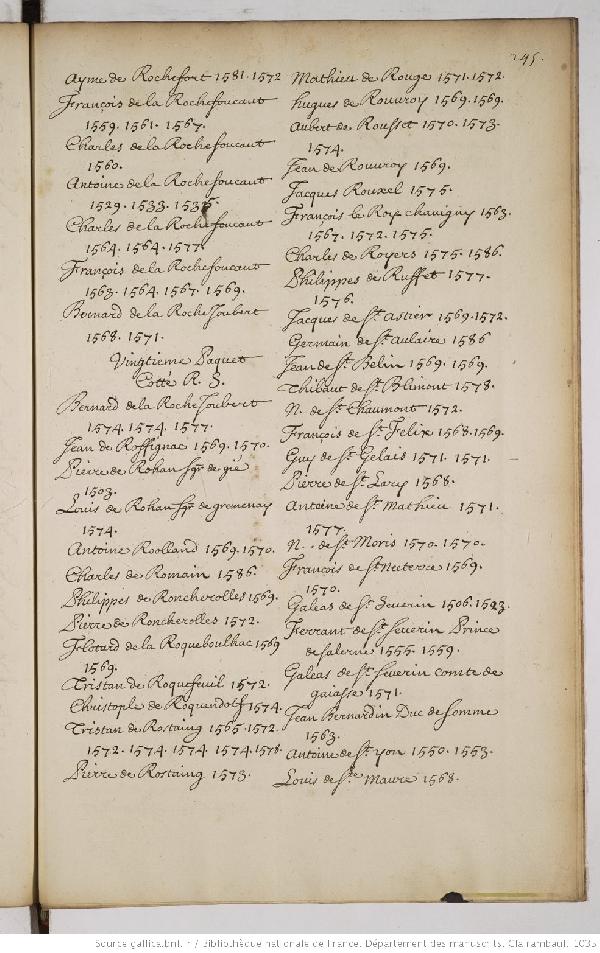 245.
Ayme de Rochefort 1581. 1572
François de la Rochefoucaut
1559. 1561. 1567.
Charles de la Rochefoucaut
1560.
Antoine de la Rochefoucaut
1529. 1533. 1535.
Charles de la Rochefoucaut
1564. 1564. 1577.
François de la Rochefoucaut
1563. 1564. 1567. 1569.
Bernard de la Roche Joubert
1568. 1571.
Vingtieme Paquet
Cotté R. S.
Bernard de la Roche Joubert
1574. 1574. 1577.
Jean de Roffignac 1569. 1570.
Pierre de Rohan sgr. de gié
1503.
Louis de Rohan sgr. de gremenay
1574.
Antoine Roolland 1569. 1570.
Charles de Romain 1586.
Philippes de Roncherolles 1569.
Pierre de Roncherolles 1572.
Flotard de la Roqueboulhac 1569
1569.
Tristan de Roquefeuil 1572.
Christople de Roquendolf 1574.
Tristan de Rostaing 1565. 1572.
1572. 1574. 1574. 1574. 1578.
Pierre de Rostaing 1573.
Mathieu de Rouge 1571. 1572.
hugues de Rouvroy 1569. 1569.
Aubert de Rousset 1570. 1573.
1574.
Jean de Rouvroy 1569.
Jacques Rouxel 1575.
François le Roy chavigny 1563.
1567. 1572. 1575.
Charles de Royers 1575. 1586.
Philippes de Ruffet 1577.
1576.
Jacques de St. Astier 1569. 1572.
Germain de St. aulaire 1586
Jean de St. Belin 1569. 1569.
Thibaut de St. Blimont 1578.
N. de St. Chaumont 1572.
François de St. Felix 1568. 1569.
Guy de St. Gelais 1571. 1571.
Pierre de St. Lary 1568.
Antoine de St. Mathieu 1571.
1577.
N. . de St. Moris 1570. 1570.
François de St. Necterre 1569.
1570.
Galeas de St. Severin 1506. 1523.
Ferrant de St. Severin Prince
de salerne 1555. 1559.
Galeas de St. Severin comte de
gaiasse 1571.
Jean Bernardin Duc de somme
1563.
Antoine de St. yon 1550. 1553.
Louis de Ste. Maure 1568.
Source gallica.bnf.fr / Bibliothèque nationale de France. Département des manuscrits. Clairambault. 1035